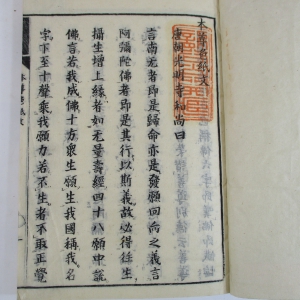 本尊色紙文
唐朝光明寺和尚曰
言南无者即是歸命亦是發願回向之義言
阿彌陀佛者即是其行以斯義故必得徃生
攝生增上緣者如无量壽經四十八願中說
佛言若我成佛十方衆生願生我國稱我名
字下至十聲乘我願力若不生者不取正覺
本尊色紙文